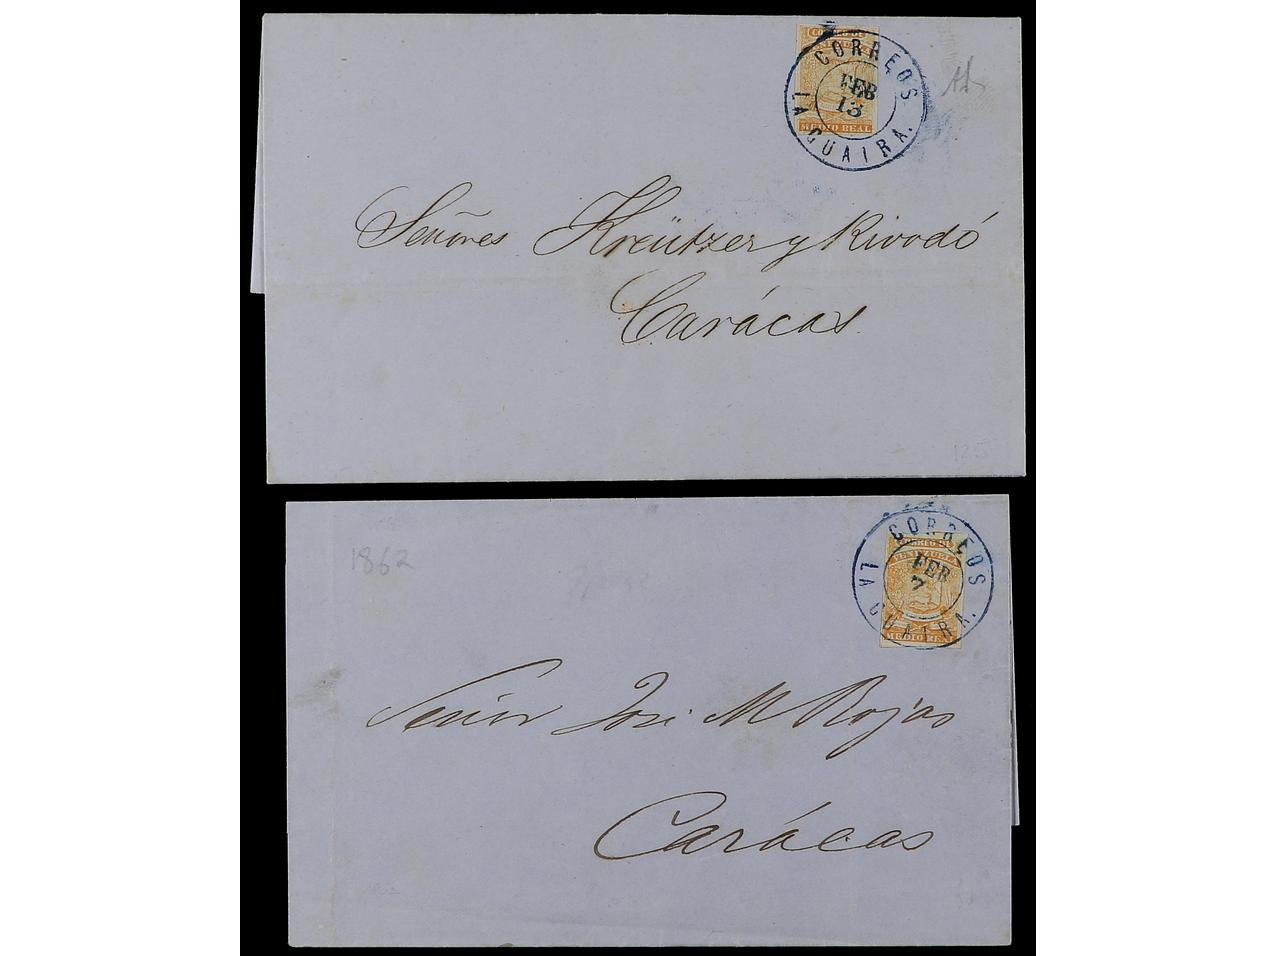 CORREOS
LA GUAIRA.
FEB
13
CORREO DE
VENEZUELA
MEDIO REAL
Señores Kreützer y Rivodó
Carácas
125
1862
CORREOS
LA GUAIRA.
FEB
7
CORREO DE
VENEZUELA
MEDIO REAL
Señor José M Rojas
Carácas